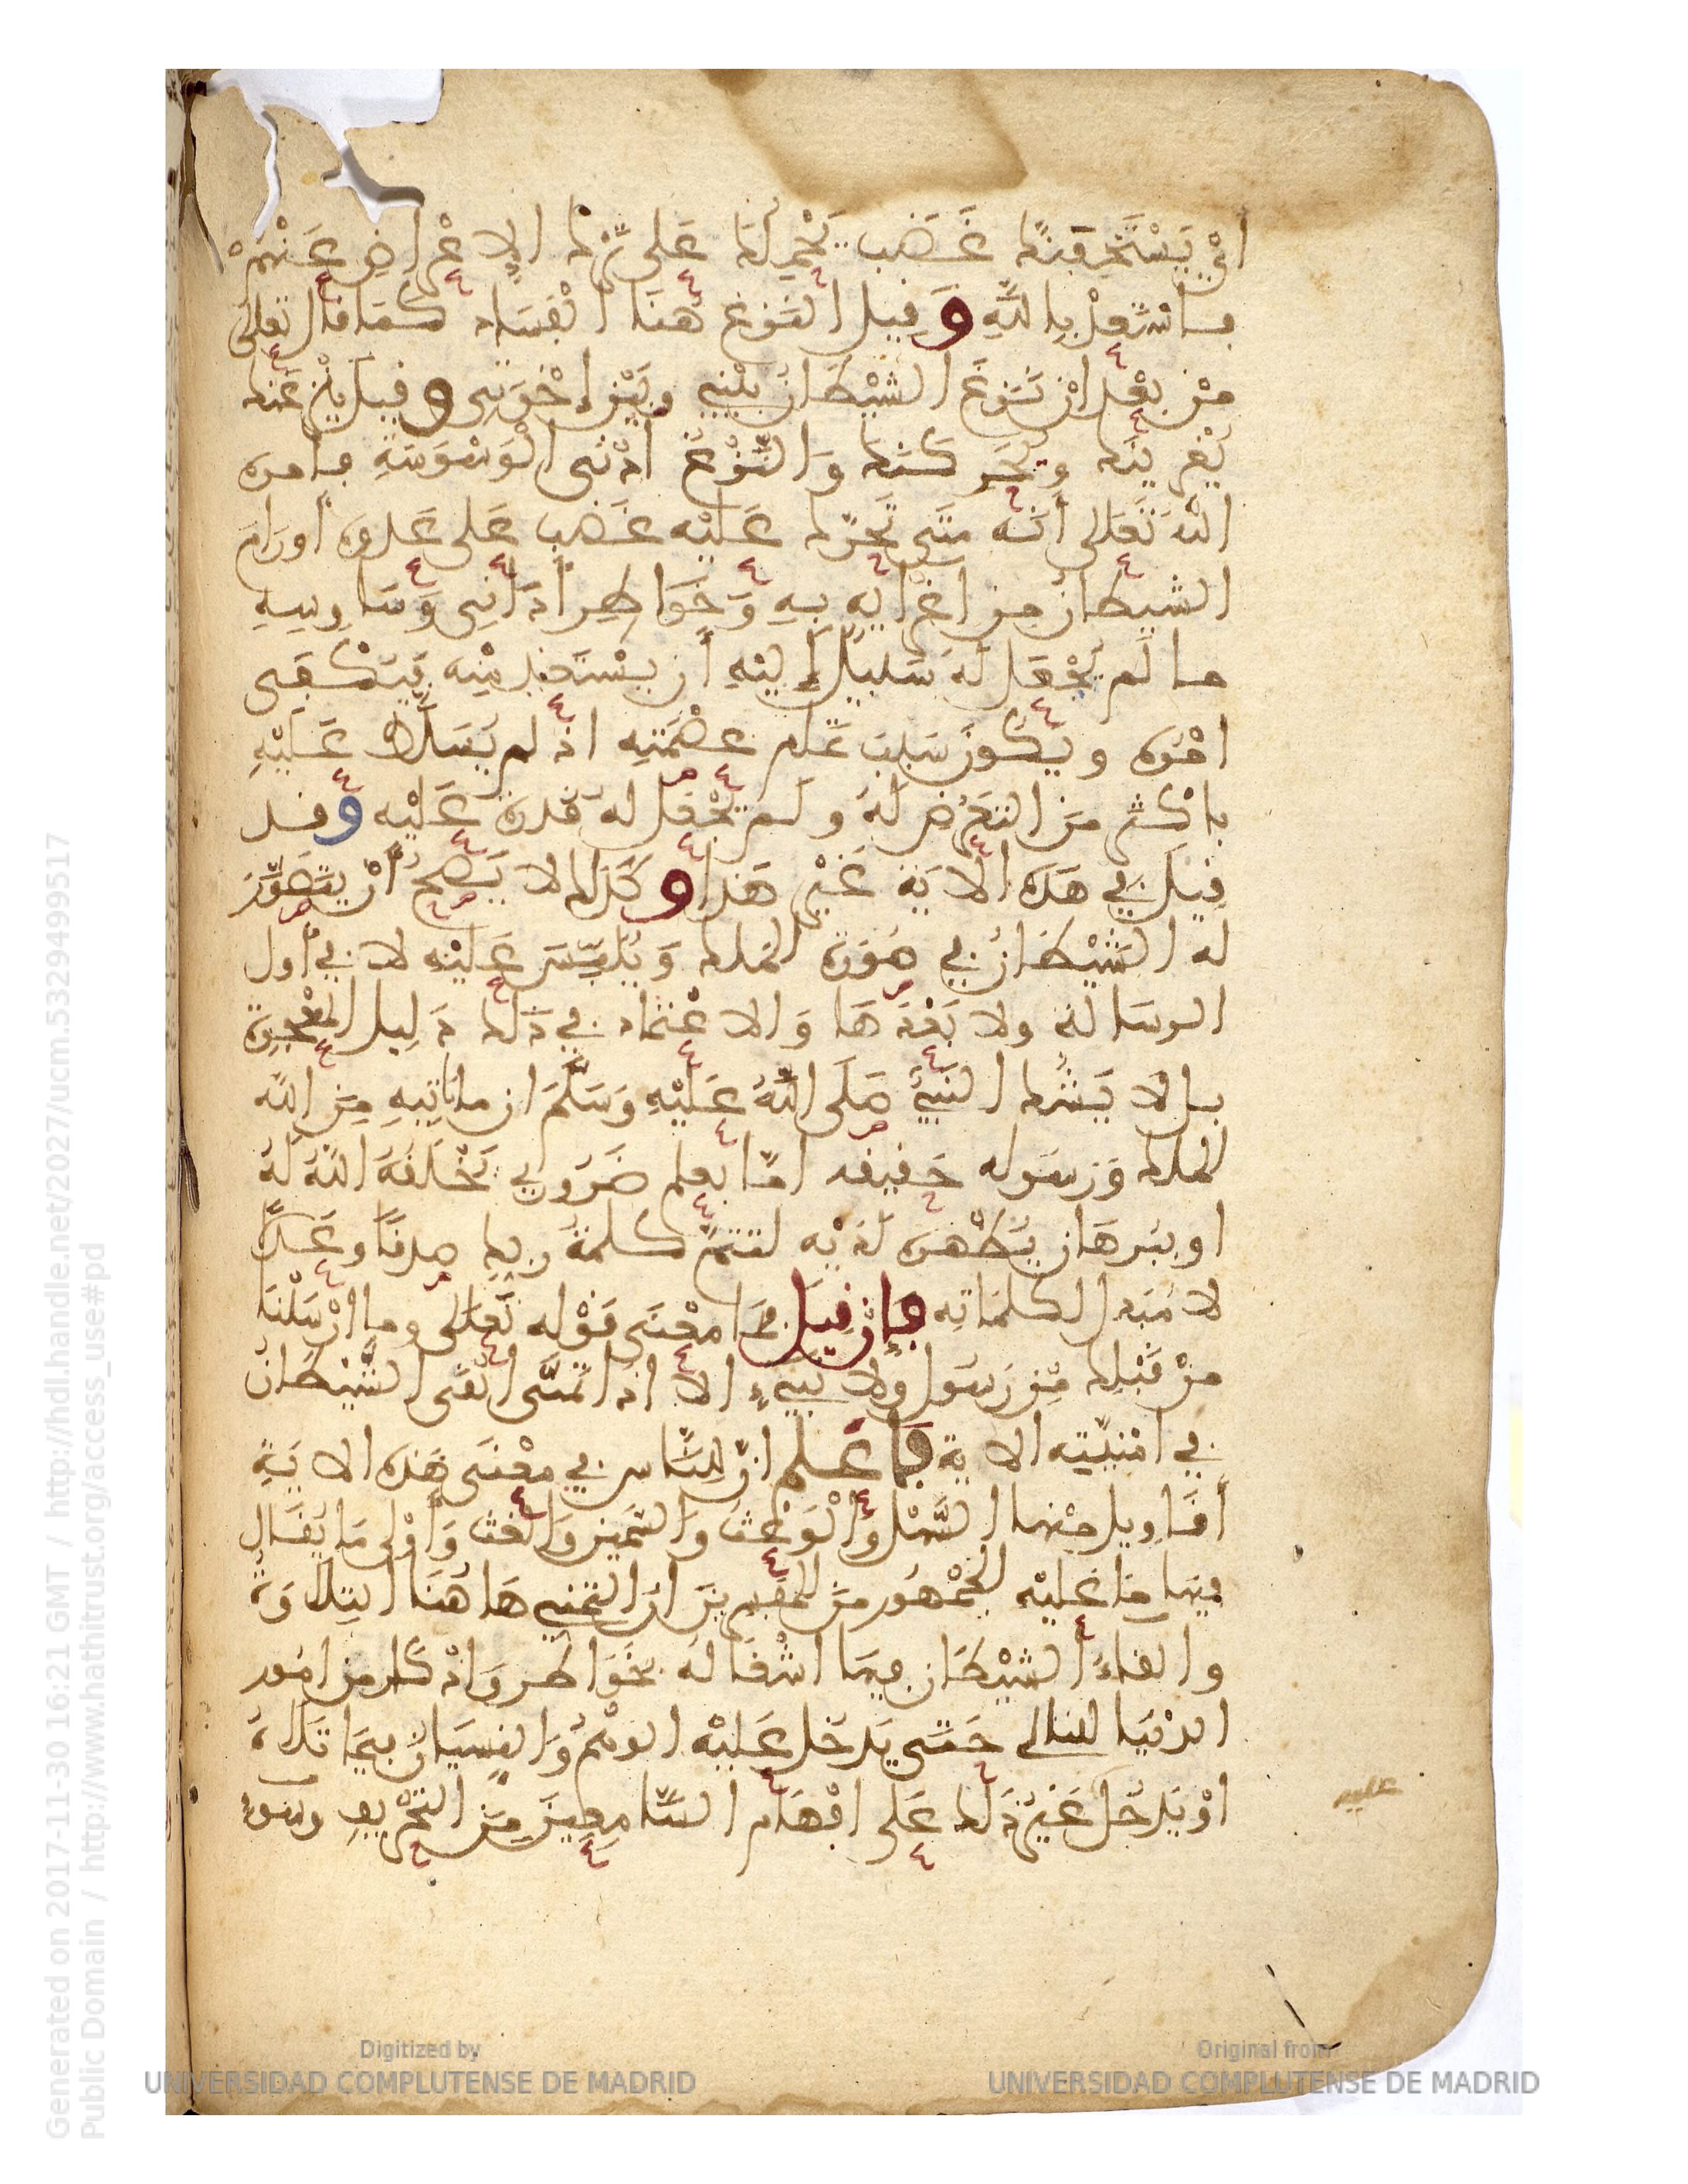 اي يستخفنك غضب يحملك على ترك الاعراض عنهم
فاستعذ بالله وقيل النزغ هنا الفساد كما قال تعالى
من بعد ان نزغ الشيطان بيني وبين اخوتي وقيل ينزغنك
يغرينك ويحركنك والنزغ ادنى الوسوسة فامره
الله تعالى أنه متى تحرك عليه غضب على عدوه أو رام
الشيطان من اغرايه به وخواطر أدانى وساوسه
ما لم يجعل له سبيل إليه أن يستعيذ منه فيكفى
امره ويكون سبب تمام عصمته اذ لم يسلط عليه
باكثر من التعرض له ولم يجعل له قدرة عليه وقد
قيل في هذه الاية غير هذا وكذلك لا يصح أن يتصور
له الشيطان في صورة الملك ويلبس عليه لا في أول
الرسالة ولا بعدها والاعتماد في ذلك دليل المعجزة
بل لا يشك النبي صلى الله عليه وسلم ان ما ياتيه من الله
الملك ورسوله حقيقة اما بعلم ضروري يخلقه الله له
او ببرهان يظهره لديه لتتم كلمة ربك صدقا وعدلا
لا مبدل لكلماته فإن قيل فما معنى قوله تعالى وما ارسلنا
من قبلك من رسول ولا نبيء الا اذا تمنى القى الشيطان
في امنيته الاية فاعلم ان للناس في معنى هذه الاية
أقاويل منها السهل والوعث والسمين والغث وأولى ما يقال
فيها ما عليه الجمهور من المفسرين ان التمني هاهنا التلاوة
والقاء الشيطان فيها اشغاله بخواطر واذكار من امور
الدنيا للتالي حتى يدخل عليه الوهم والنسيان فيما تلاه
او يدخل غير ذلك على افهام السامعين من التحريف وسوء
عليه
Generated on 2017-11-30 16:21 GMT / http://hdl.handle.net/2027/ucm.5329499517
Public Domain / http://www.hathitrust.org/access_use#pd
Digitized by
UNIVERSIDAD COMPLUTENSE DE MADRID
Original from
UNIVERSIDAD COMPLUTENSE DE MADRID